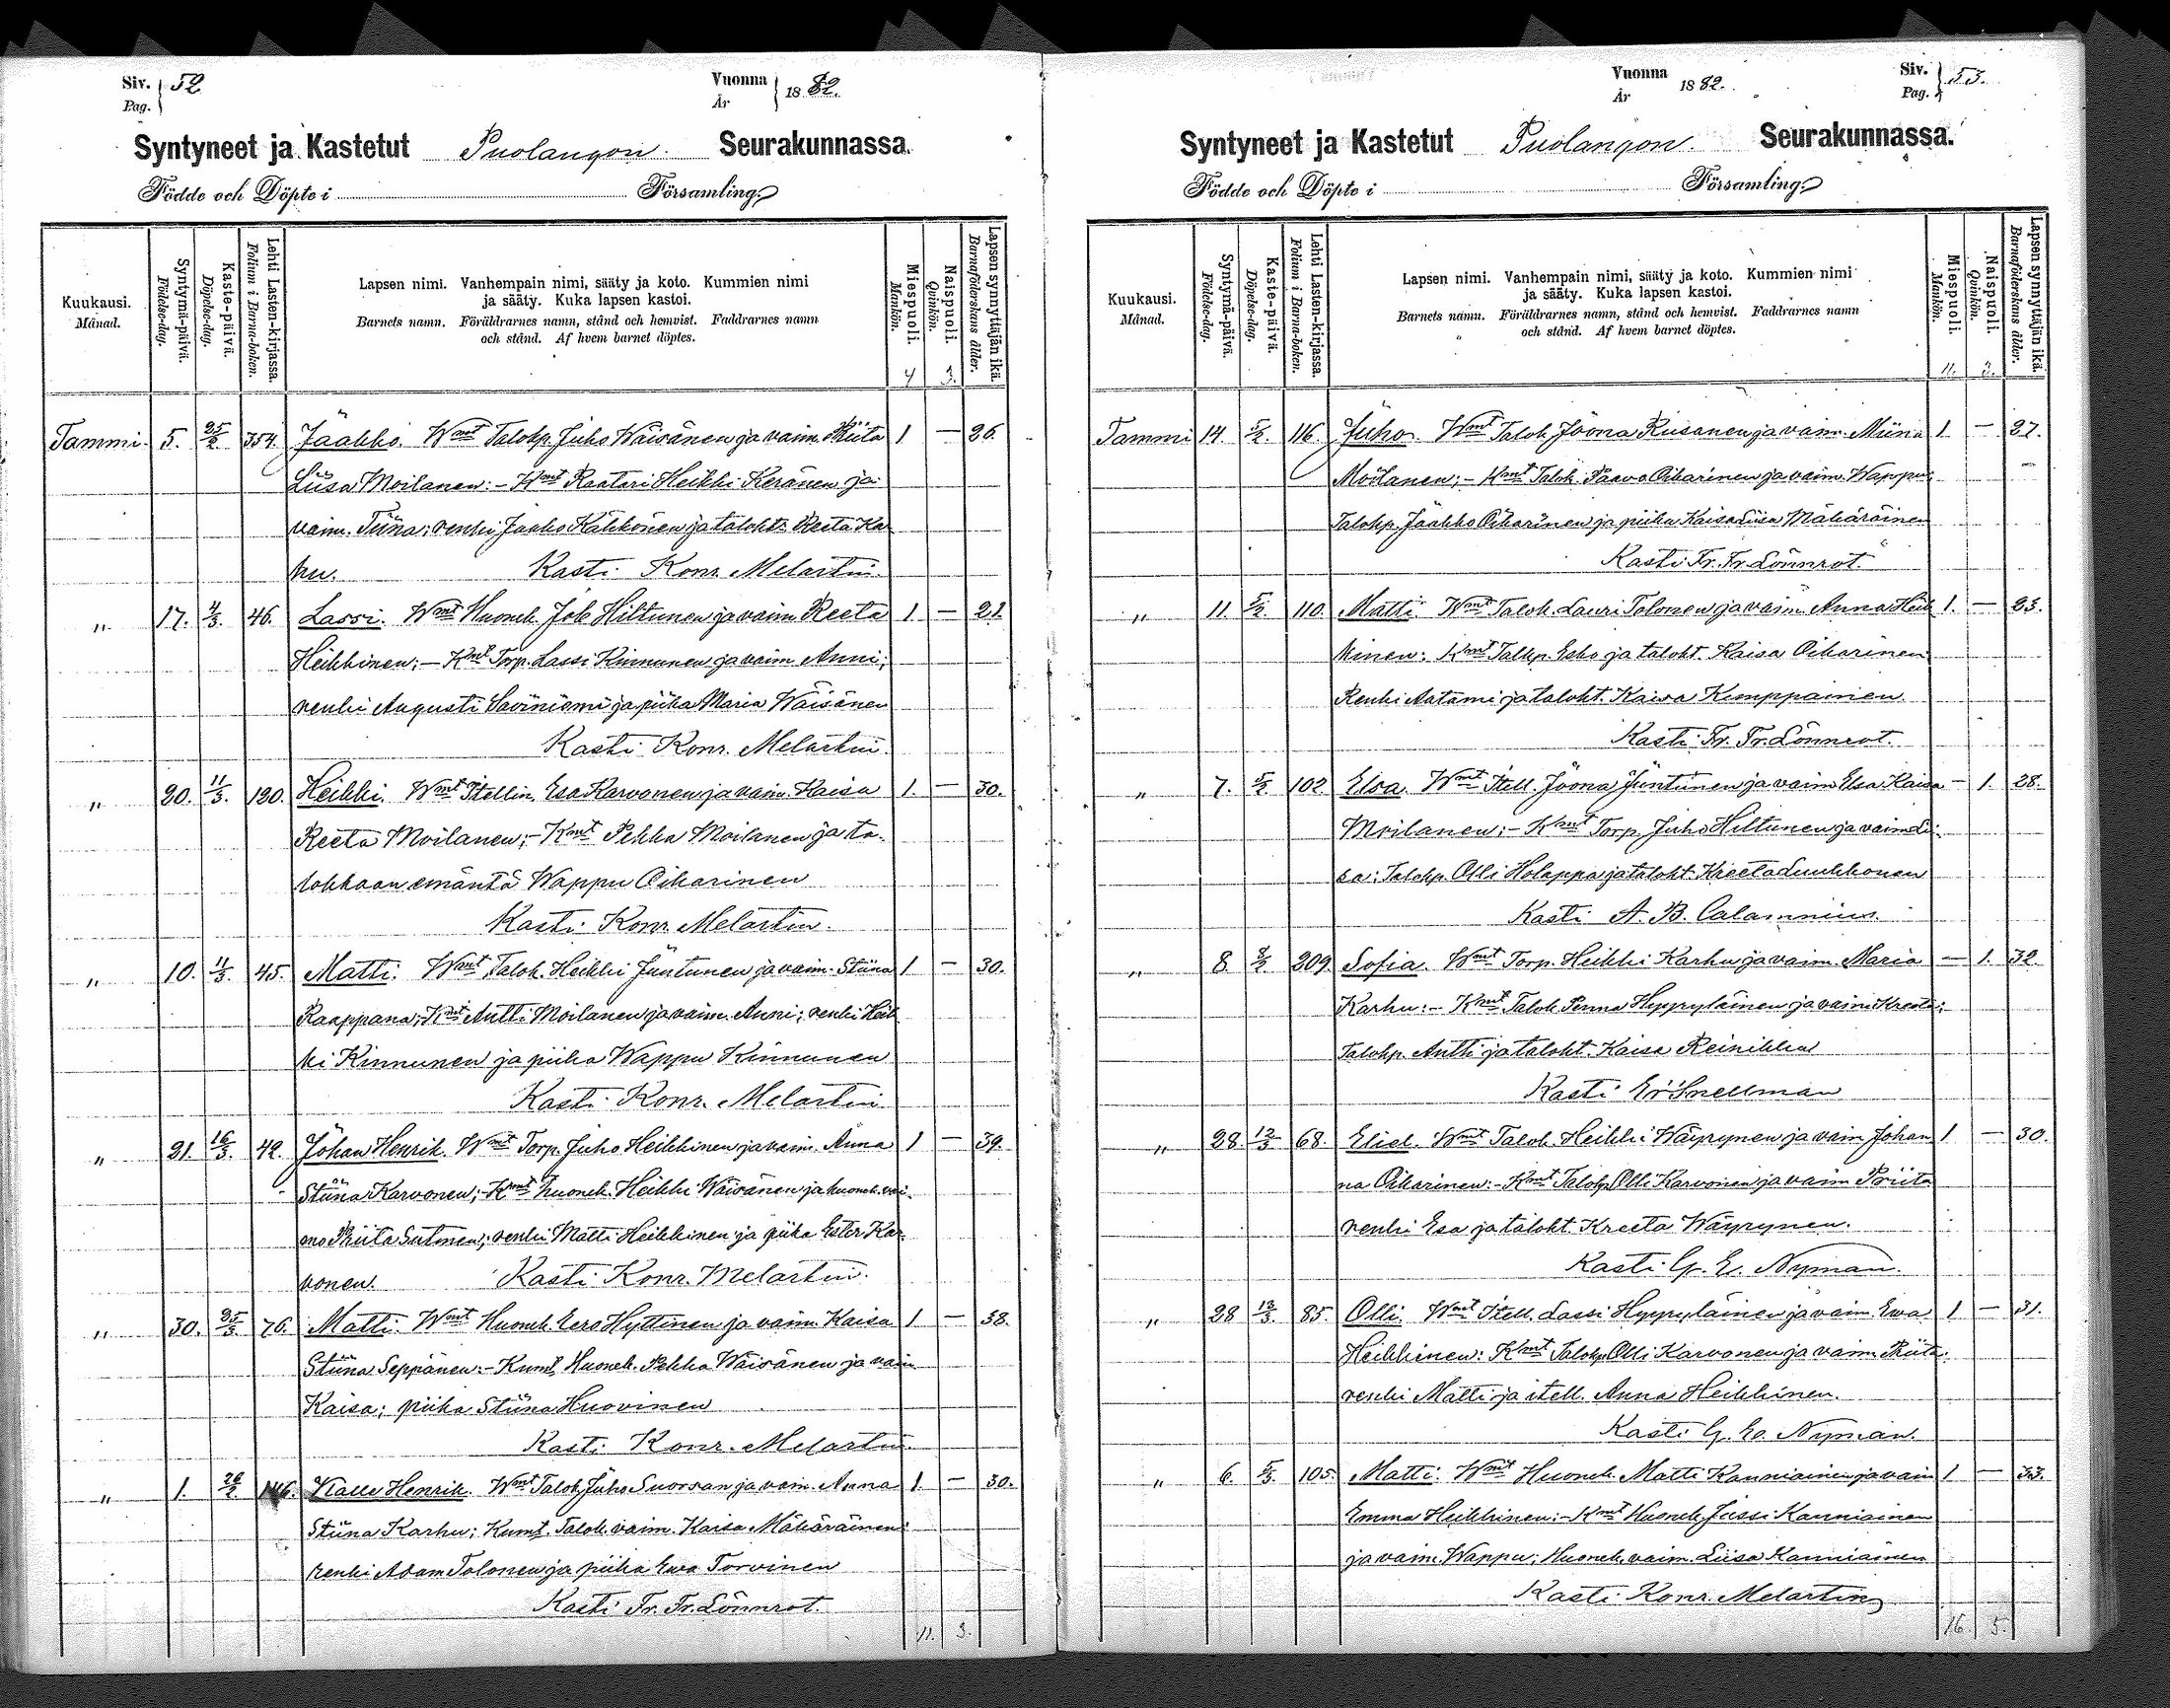 Siv. 52
Pag.
Vuonna 1882.
År
Syntyneet ja Kastetut Puolangon Seurakunnassa.
Födde och Döpte i Församling.
Kuukausi. Månad.
Syntymä-päivä. Födelse-dag.
Kaste-päivä. Döpelse-dag.
Lehti Lasten-kirjassa. Folium i Barna-boken.
Lapsen nimi. Vanhempain nimi, sääty ja koto. Kummien nimi
ja sääty. Kuka lapsen kastoi.
Barnets namn. Föräldrarnes namn, stånd och hemvist. Faddrarnes namn
och stånd. Af hvem barnet döptes.
Miespuoli. Mankön.
Naispuoli. Qvinkön.
Lapsen synnyttäjän ikä. Barnaföderskans ålder.
4 3.
Tammi 5. 25/2. 354. Jaakko. Wmt Talokp. Juho Wäisänen ja vaim. Riita 1 — 26.
Liisa Moilanen: – Kmt Raatari Heikki Keränen ja
vaim. Tiina; renki Jaako Kähkönen ja talokt. Reeta Ka
hu. Kasti Konr. Melartin.
" 17. 4/3. 46. Lassi. Wmt Huonek. Job Hiltunen ja vaim Reeta 1 — 21.
Heikkinen; – Kmt Torp. Lassi Kinnunen ja vaim. Anni;
renki Augusti Saviniemi ja piika Maria Wäisänen
Kasti Konr. Melartin.
" 20. 11/3. 120. Heikki. Wmt Itellin. Esa Karvonen ja vaim. Kaisa 1. — 30.
Reeta Moilanen; – Kmt Pekka Moilanen ja ta-
lokkaan emäntä Wappu Oikarinen
Kasti Konr. Melartin.
" 10. 11/3. 45. Matti. Wmt Talok. Heikki Juntunen ja vaim. Stiina 1 — 30.
Raappana; Kmt Antti Moilanen ja vaim. Anni; renki Heik
ki Kinnunen ja piika Wappu Kinnunen
Kasti Konr. Melartin.
" 21. 16/3. 42. Johan Henrik. Wmt Torp. Juho Heikkinen ja vaim. Anna 1 — 39.
Stiina Karvonen; – Kmt huonek. Heikki Wäisänen ja huonek. vai-
mo Riita Sutinen; renki Matti Heikkinen ja piika Ester Kar-
vonen. Kasti Konr. Melartin.
" 30. 25/3 76. Matti. Wmt Huonek. Eero Hyttinen ja vaim. Kaisa 1 — 38.
Stiina Seppänen: – Kumt. Huonek. Pekka Wäisänen ja vaim
Kaisa; piika Stiina Huovinen
Kasti Konr. Melartin
" 1. 26/2. 146. Kalle Henrik. Wmt Talok. Juho Suorsan ja vaim. Anna 1. — 30.
Stiina Karhu; Kumt. Talok. vaim. Kaisa Mäkäräinen:
renki Adam Tolonen ja piika Ewa Torvinen
Kasti Fr. Fr. Lönnrot.
11. 3.
Vuonna 1882.
År
Siv. 53.
Pag.
Syntyneet ja Kastetut Puolangon. Seurakunnassa.
Födde och Döpte i Församling.
Kuukausi. Månad.
Syntymä-päivä. Födelse-dag.
Kaste-päivä. Döpelse-dag.
Lehti Lasten-kirjassa. Folium i Barna-boken.
Lapsen nimi. Vanhempain nimi, sääty ja koto. Kummien nimi
ja sääty. Kuka lapsen kastoi.
Barnets namn. Föräldrarnes namn, stånd och hemvist. Faddrarnes namn
och stånd. Af hvem barnet döptes.
Miespuoli. Mankön.
Naispuoli. Qvinkön.
Lapsen synnyttäjän ikä. Barnaföderskans ålder.
11. 3.
Tammi 14. 5/2. 116. Juho. Wmt Talok. Joona Kusanen ja vaim. Miina 1. — 27.
Moilanen; – Kmt Talok. Paavo Oikarinen ja vaim. Wappu
Talokp. Jaakko Oikarinen ja piika Kaisa Liisa Mäkäräinen
Kasti Fr. Fr. Lönnrot.
" 11. 5/2. 110. Matti. Wmt Talok. Lauri Tolonen ja vaim. Anna Heik 1. — 23.
kinen: Kmt Talkp. Esko ja talokt. Kaisa Oikarinen
Renki Aatami ja talokt. Kaisa Kemppainen.
Kasti Fr. Fr. Lönnrot.
" 7. 5/2. 102 Elsa. Wmt Itell. Joona Juntunen ja vaim Elsa Kaisa — 1. 28.
Moilanen: – Kmt Torp. Juho Hiltunen ja vaim Lii-
sa: Talokp. Olli Holappa ja talokt. Kreeta Luukkonen
Kasti A. B. Calamnius.
" 8 9/2. 209 Sofia. Wmt Torp. Heikki Karhu ja vaim. Maria — 1. 32.
Karhu: – Kmt Talok. Penna Hyyryläinen ja vaim. Kreeta;
Talokp. Antti ja talokt. Kaisa Reinikka
Kasti Er. Snellman
" 28. 12/3 68. Eliel. Wmt Talok. Heikki Wäyrynen ja vaim Johan 1 — 30.
na Oikarinen: – Kmt Talokp. Olli Karvonen ja vaim Priita
renki Esa ja talokt. Kreeta Wäyrynen.
Kasti G. E. Nyman.
" 28 12/3. 85. Olli. Wmt Itell. Lassi Hyyryläinen ja vaim. Ewa 1 — 31.
Heikkinen: Kmt Talokp. Olli Karvonen ja vaim. Riita:
renki Matti ja itell. Anna Heikkinen.
Kasti G. E. Nyman.
" 6. 5/3. 105. Matti. Wmt Huonek. Matti Kanniainen ja vaim 1 — 33.
Emma Heikkinen: – Kmt Huonek. Jussi Kanniainen
ja vaim. Wappu; Huonek. vaim. Liisa Kanniainen
Kasti Konr. Melartin
16. 5.